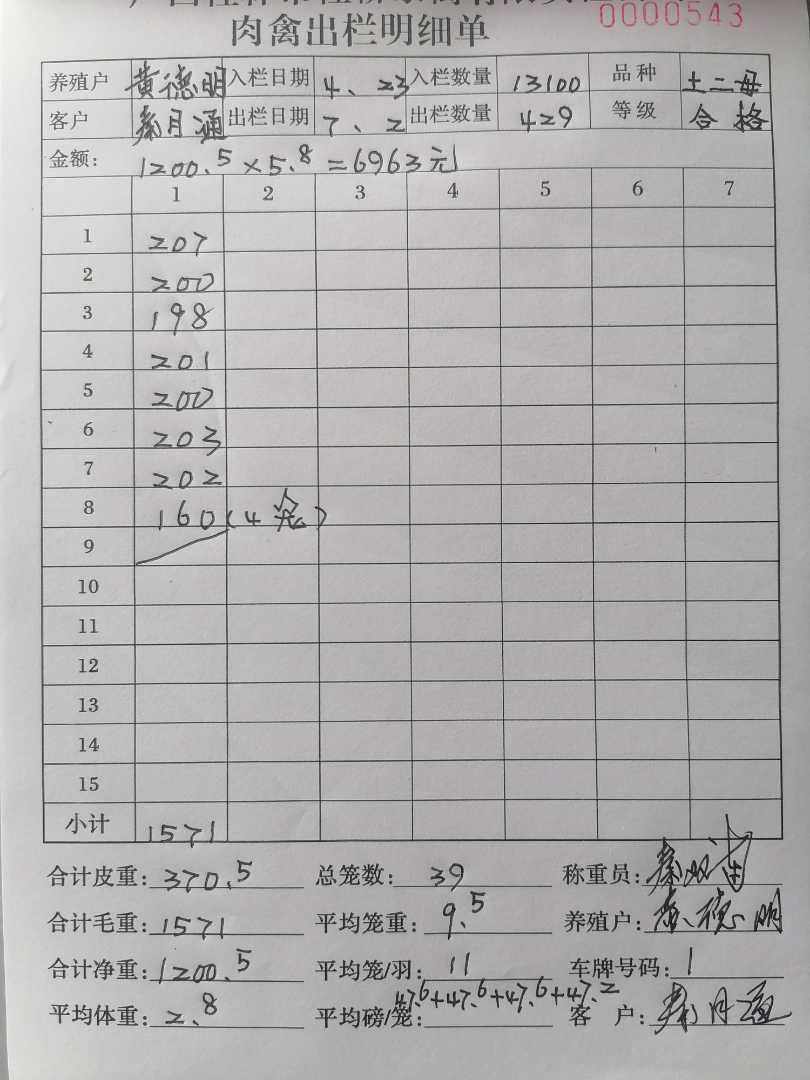 0000543
肉禽出栏明细单
养殖户 黄德明 入栏日期 4、23 入栏数量 13100 品种 土二母
客户 秦月通 出栏日期 7、2 出栏数量 429 等级 合格
金额: 1200.5×5.8=6963元
1 2 3 4 5 6 7
1 207
2 200
3 198
4 201
5 200
6 203
7 202
8 160(4笼)
9
10
11
12
13
14
15
小计 1571
合计皮重: 370.5 总笼数: 39 称重员:
合计毛重: 1571 平均笼重: 9.5 养殖户: 黄德明
合计净重: 1200.5 平均笼/羽: 11 车牌号码: 1
47.6+47.6+47.6+47.2
平均体重: 2.8 平均磅/笼: 客户: 秦月通